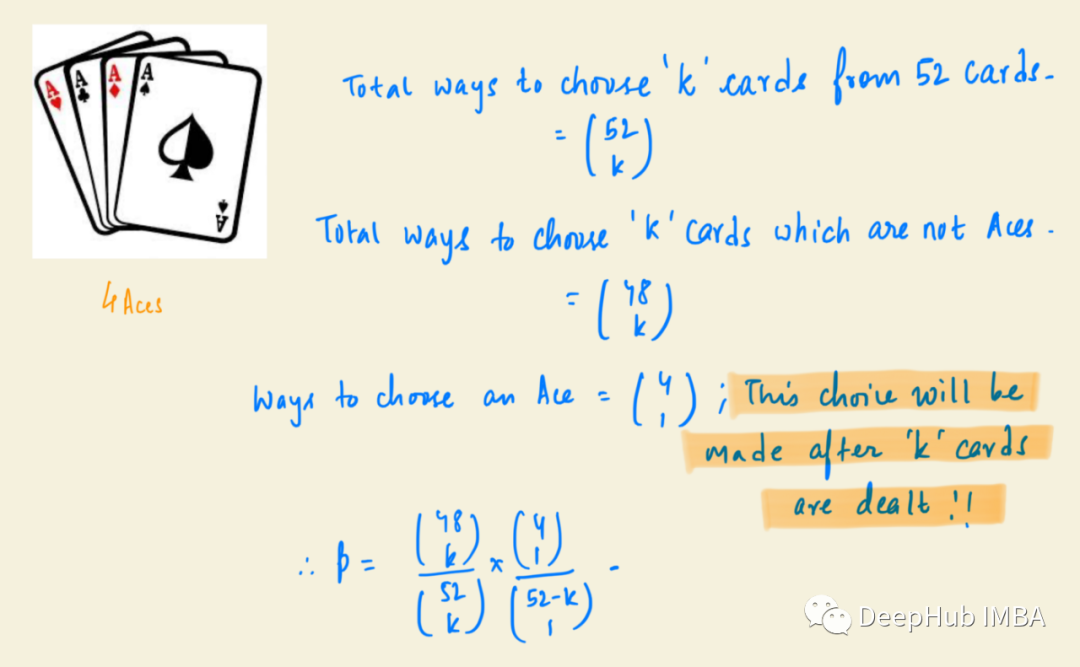 A A A A
A
Total ways to choose 'k' cards from 52 cards-
= (52 k)
Total ways to choose 'k' cards which are not Aces.
= (48 k)
4 Aces
Ways to choose an Ace = (4 1) ; This choice will be
made after 'k' cards
are dealt !!
∴ p = (48 k)/(52 k) × (4 1)/(52-k 1) .
DeepHub IMBA